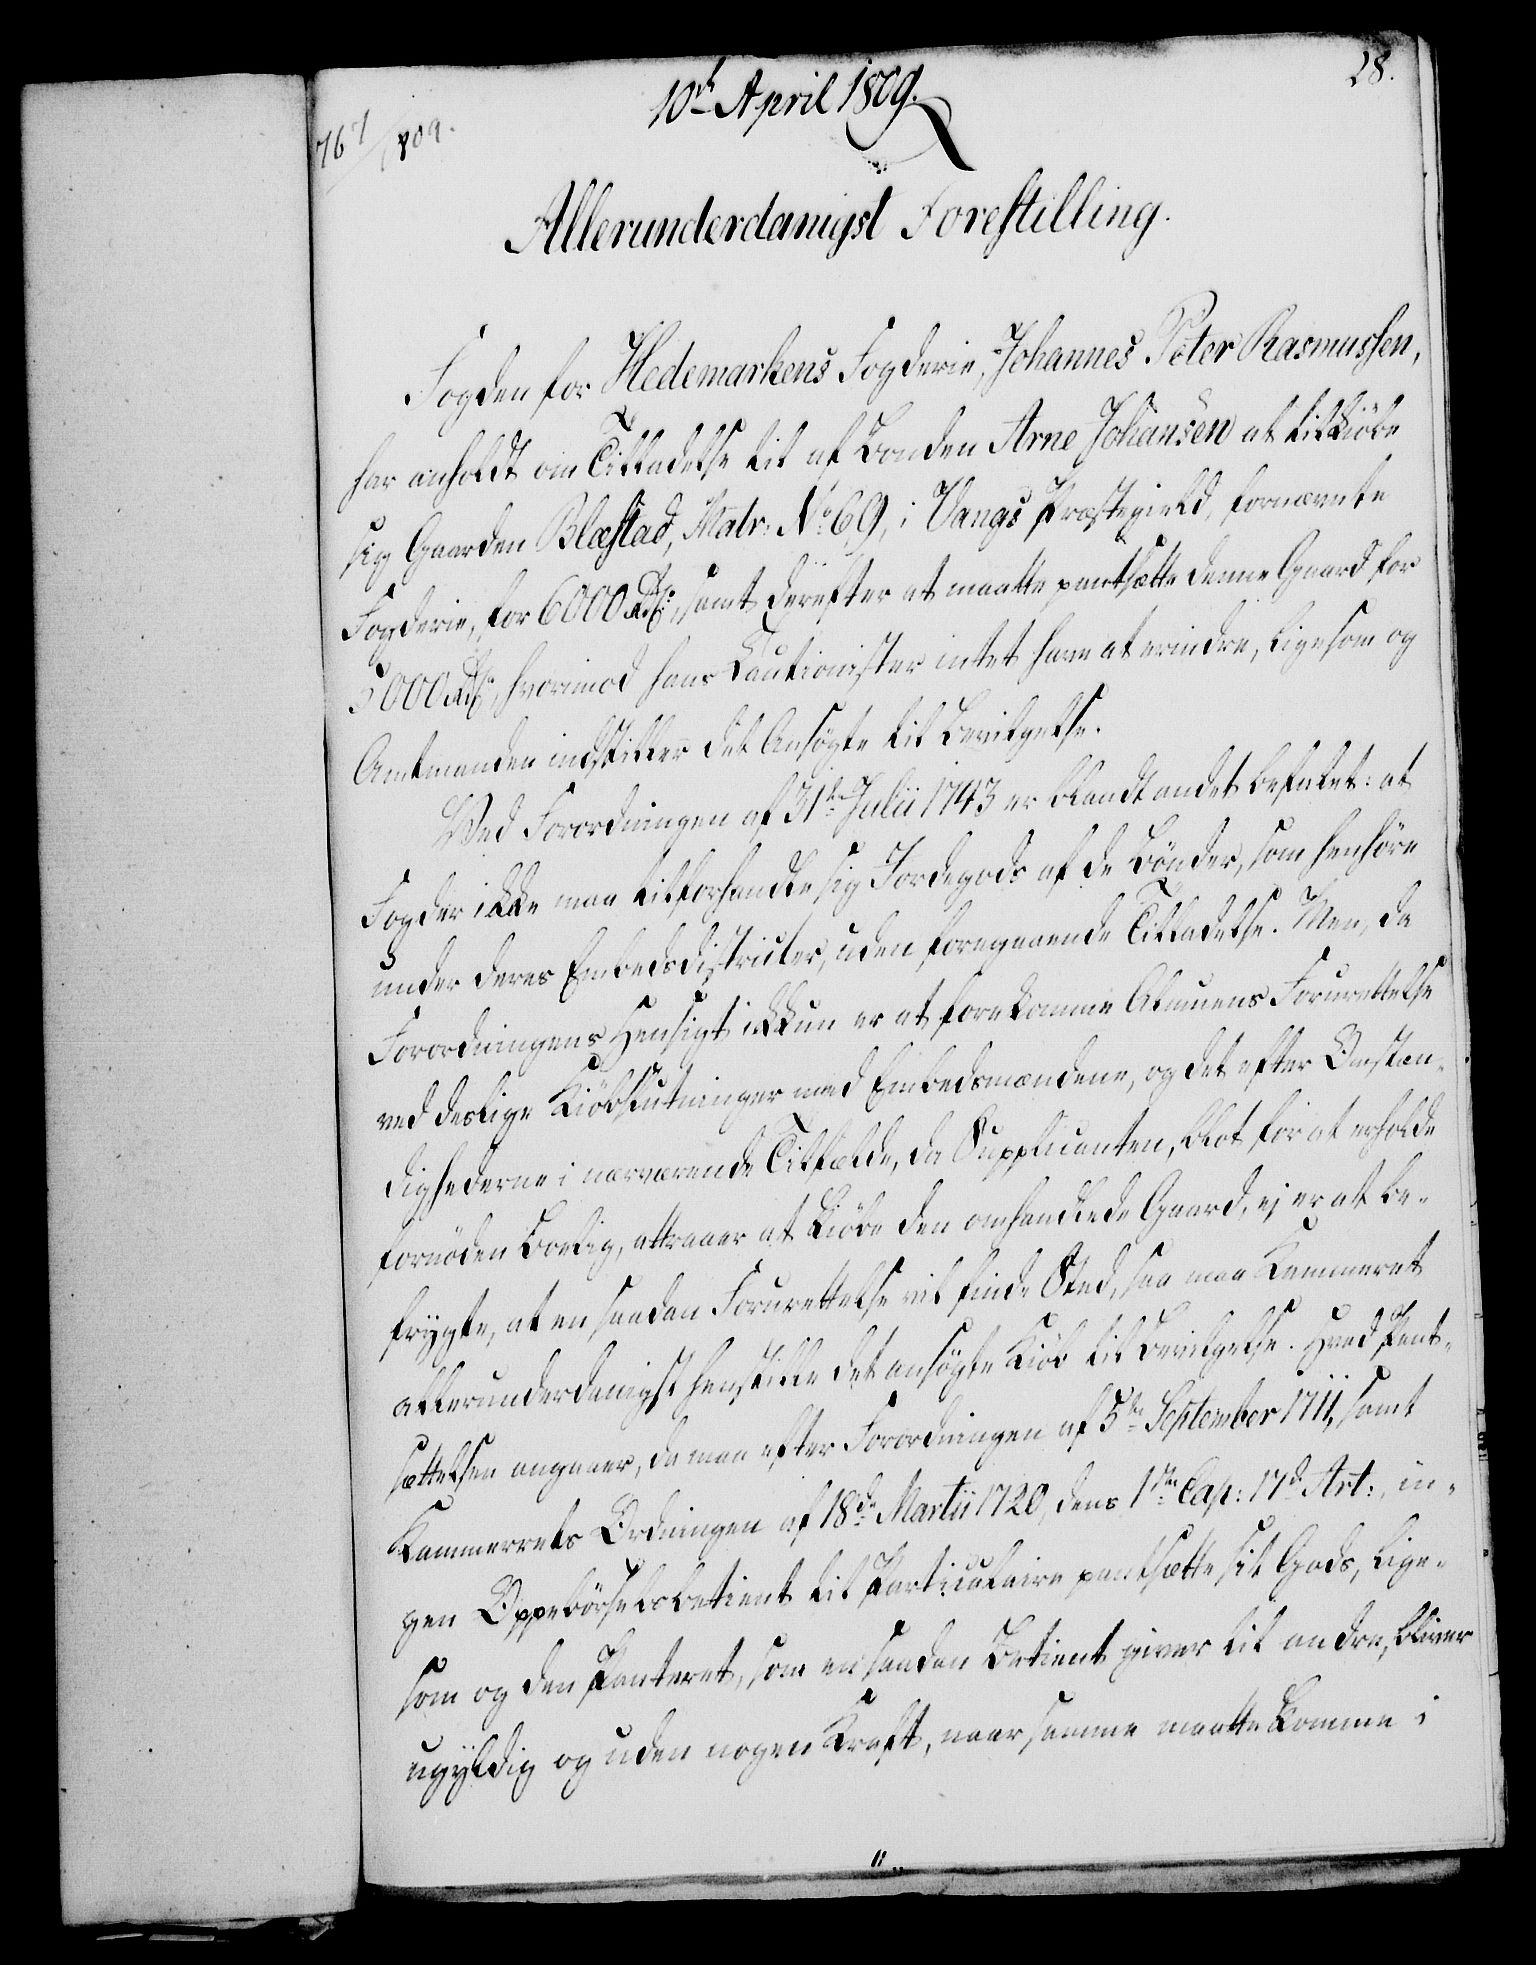 28.
10de April 1809.
767/809.
Allerunderdanigst Forestilling.
Fogden for Hedemarkens Fogderie, Johannes Peter Rasmussen,
har anholdt om Tilladelse til af Bonden Arne Johansen at tilkiöbe
sig Gaarden Blæstad, Matr: No 69, i Vangs Præstegield, fornævnte
Fogderie, for 6000 Rd., samt derefter at maatte pantsætte denne Gaard for
5000 Rd., hvorimod hans Cautionister intet have at erindre, ligesom og
Amtmanden indstiller det Ansögte til Bevilgelse.
Ved Forordningen af 31te Julii 1743 er blandt andet befalet: at
Fogder ikke maa tilforhandle sig Jordegods af de Bönder, som henhöre
under deres Embedsdistricter, uden foregaaende Tilladelse. Men, da
Forordningens Hensigt ikkun er at forekomme Almuens Forurettelse
ved deslige Kiöbslutninger med Embedsmændene, og det efter Omstæn-
dighederne i nærværende Tilfælde, da Supplicanten, blot for at erholde
fornöden Boelig, attraaer at kiöbe den omhandlede Gaard, ej er at be-
frygte, at en saadan Forurettelse vil finde Sted, saa maa Kammeret
allerunderdanigst henstille det ansögte Kiöb til Bevilgelse. Hvad Pant-
sættelsen angaaer, da maa efter Forordningen af 5te September 1711, samt
Kammerrets Ordningen af 18de Martii 1720, dens 1ste Cap: 17de Art:, in-
gen Oppebörselsbetient til Particulaire pantsætte sit Gods, lige-
som og den Panteret, som en saadan Betient giver til andre, bliver
ugyldig og uden nogen Kraft, naar samme maatte komme i